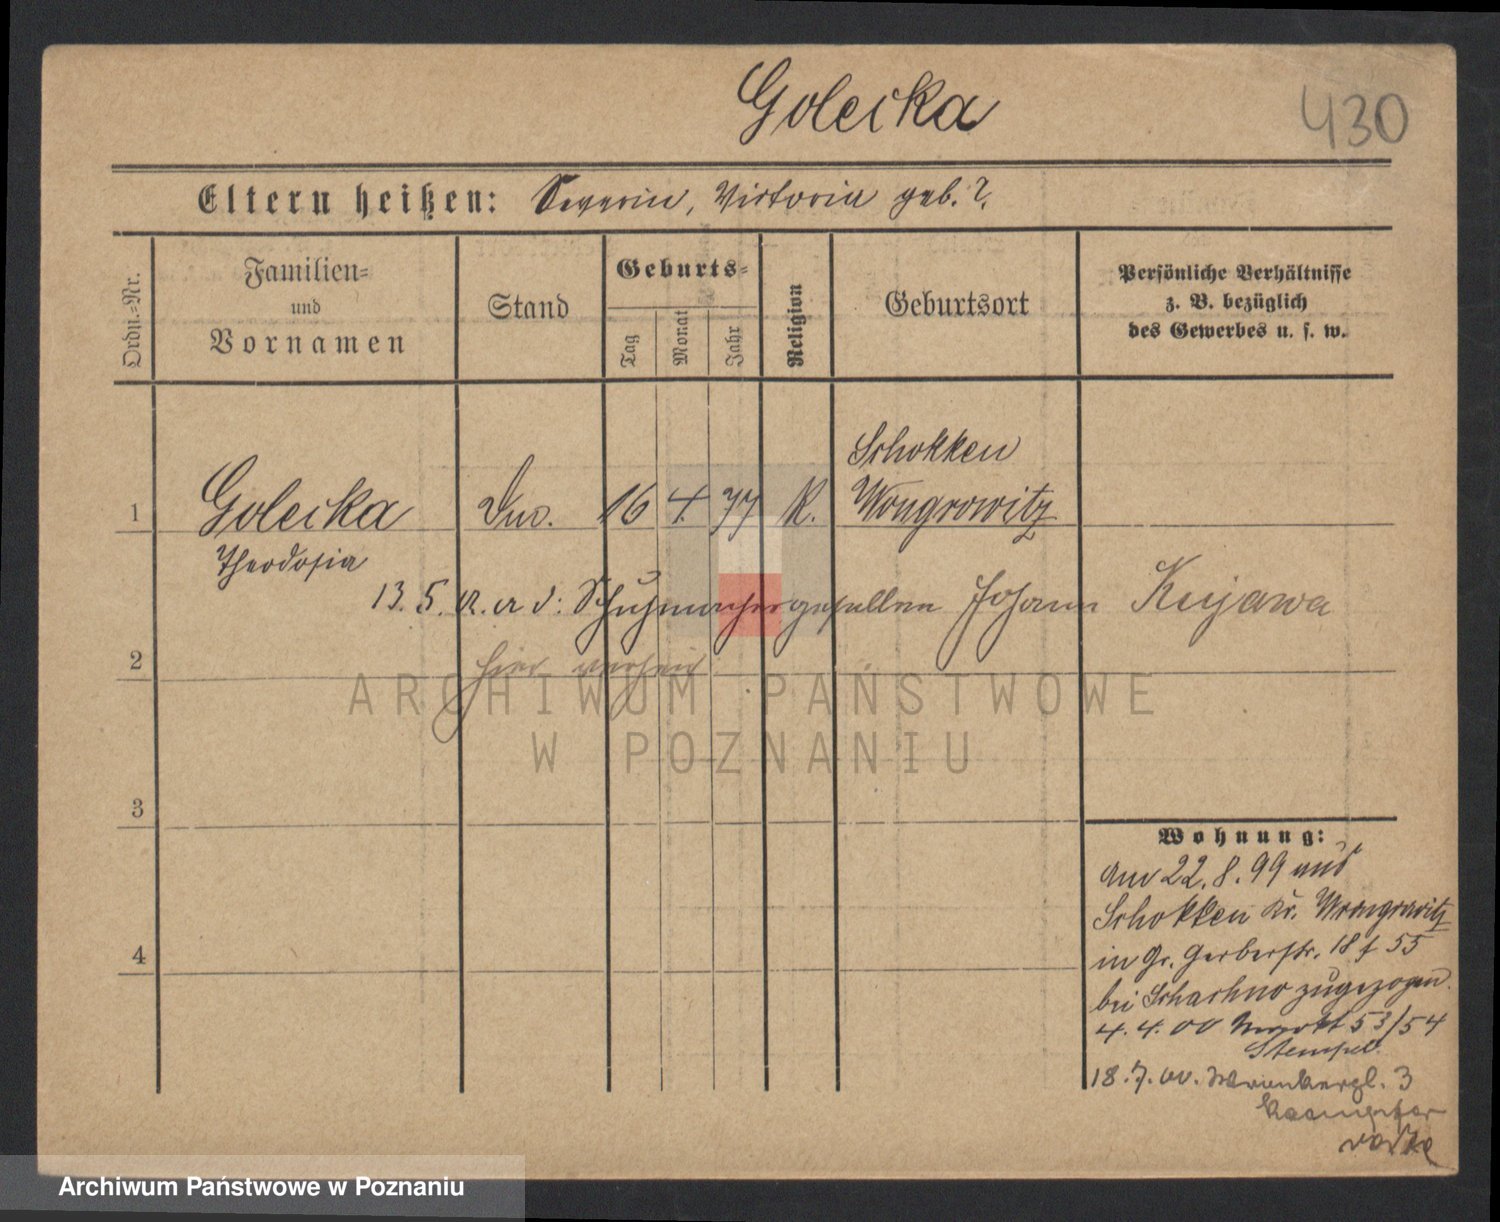 Golecka
430
Eltern heißen: Severin, Victoria geb. ?.
Ordn.-Nr.
Familien-
und
Vornamen
Stand
Geburts-
Tag
Monat
Jahr
Religion
Geburtsort
Persönliche Verhältnisse
z. B. bezüglich
des Gewerbes u. s. w.
Schokken
1 Golecka 16 4. 77 K. Wongrowitz
Theodosia
13. 5. Schuhmachergesellen Johann Kujawa
2 hier
ARCHIWUM PAŃSTWOWE
W POZNANIU
3
Wohnung:
am 22. 8. 99 aus
Schokken Kr. Wongrowitz
4 in Gr. Gerberstr. 18 55
bei zugezogen.
4. 4. 00 Markt 53/54
Stempel.
18. 7. 00. 3
Archiwum Państwowe w Poznaniu